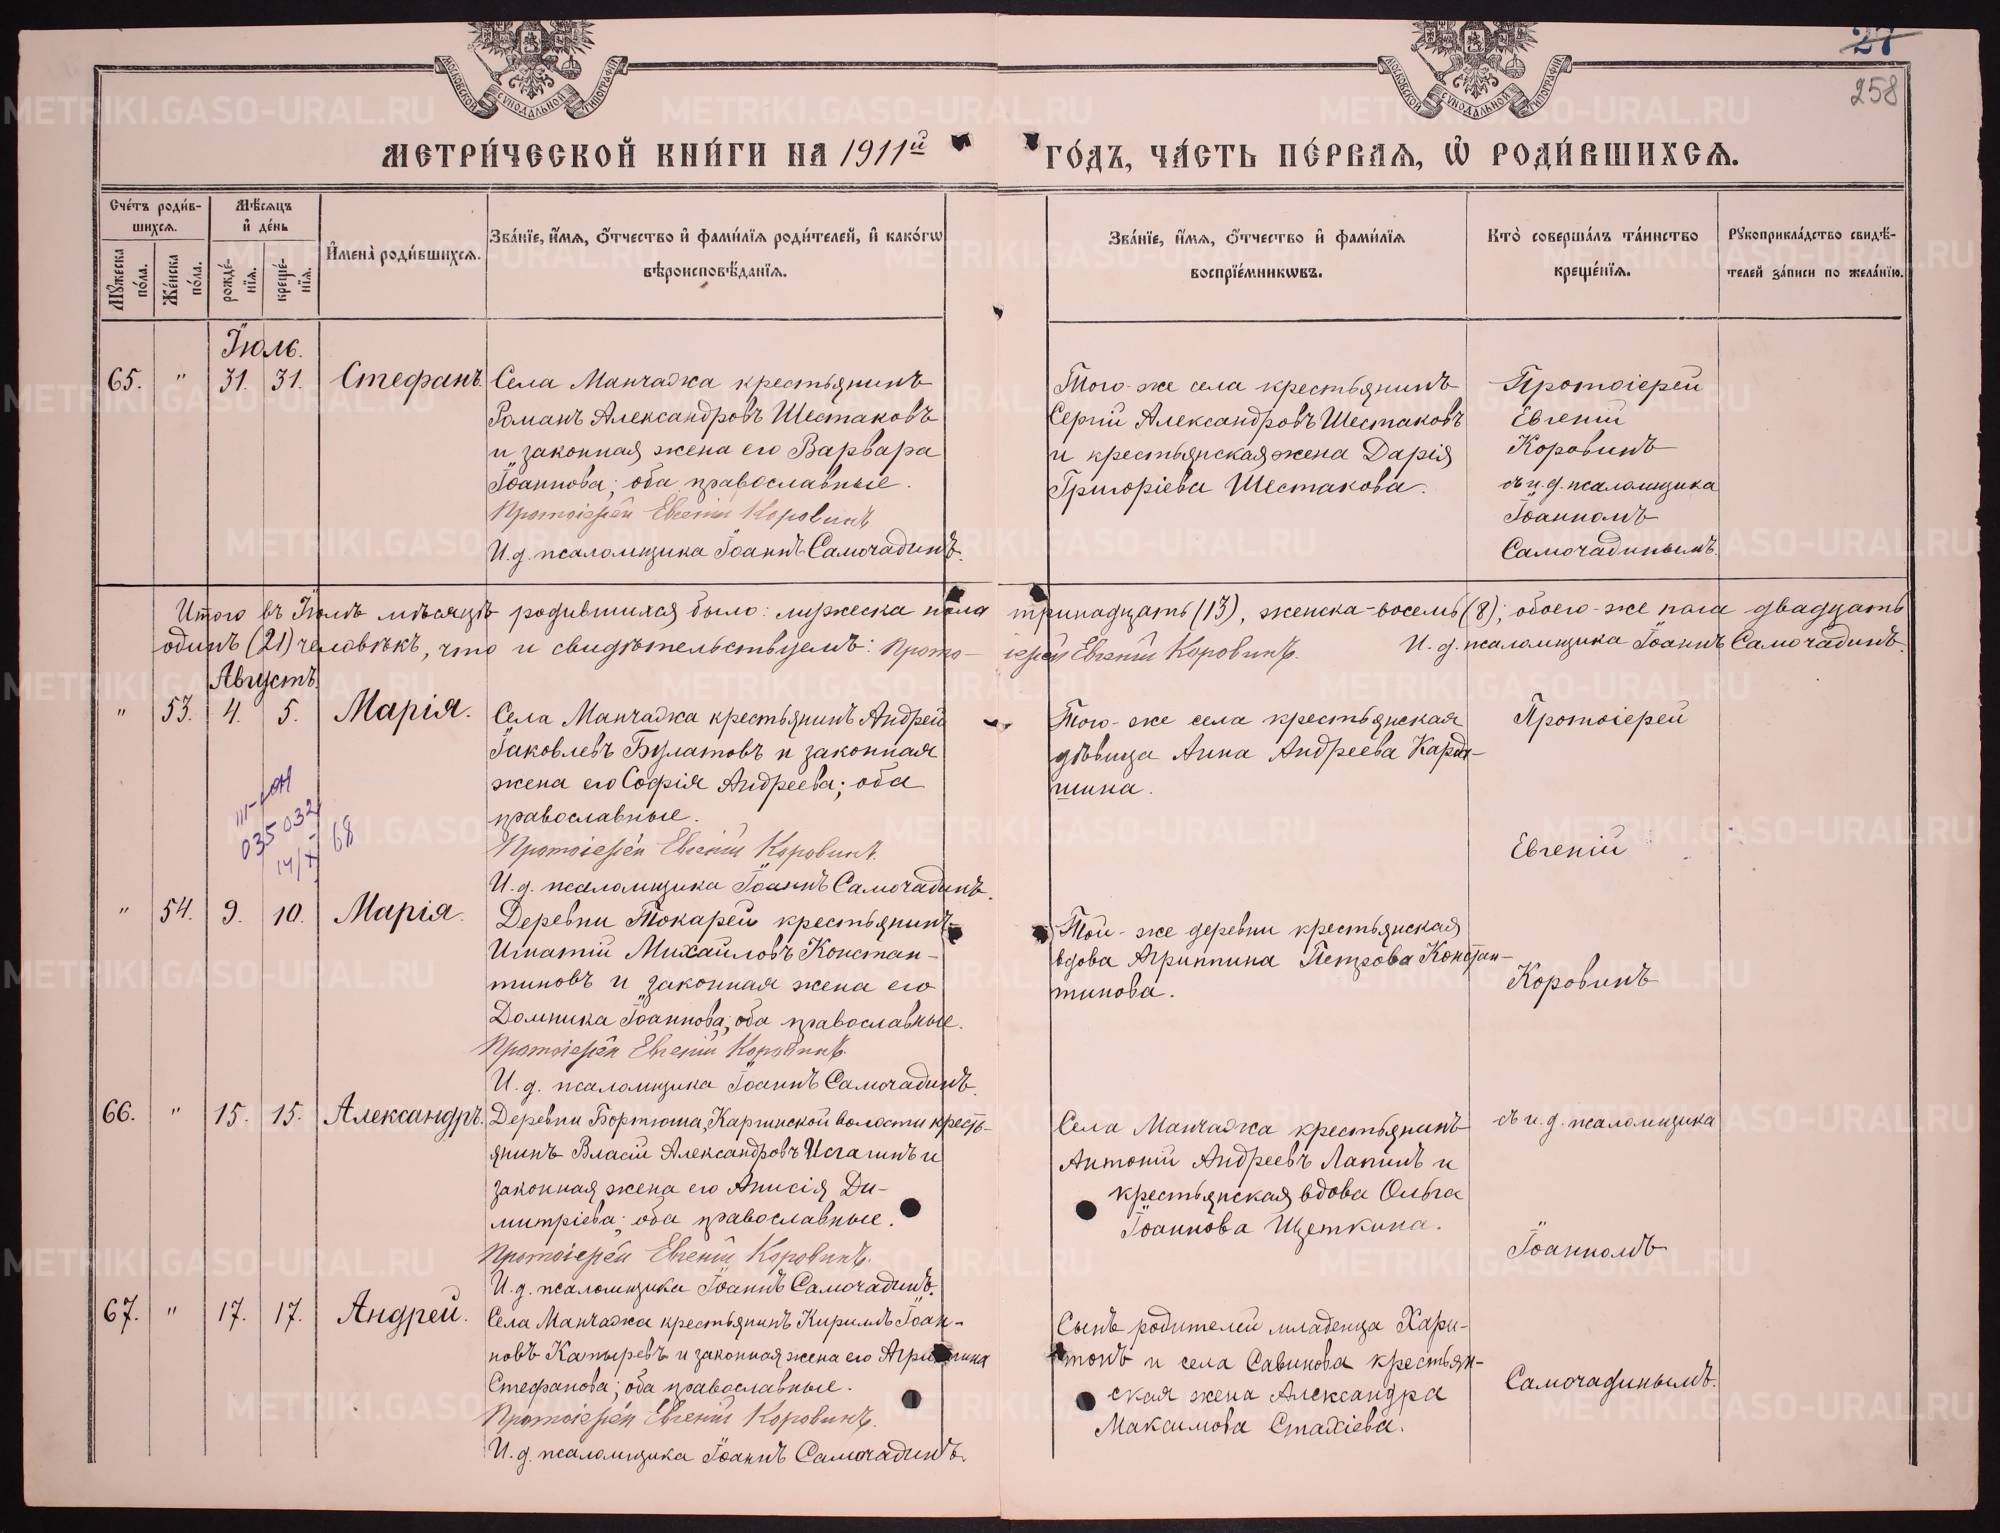 27
258
МОСКОВСКОЙ СУНОДАЛЬНОЙ ТИПОГРАФІИ
МОСКОВСКОЙ СУНОДАЛЬНОЙ ТИПОГРАФІИ
МЕТРИ́ЧЕСКОЙ КНИ́ГИ НА 1911й ГО́ДЪ, ЧА́СТЬ ПЕ́РВАѦ, Ѡ РОДИ́ВШИХСѦ.
Сче́тъ роди́в-
шихсѧ.
Мꙋжеска по́ла.
Же́нска по́ла.
Мѣ́сѧцъ
и҆ де́нь
рожде́-нїѧ.
креще́-нїѧ.
И҆мена̀ роди́вшихсѧ.
Зва́нїе, и҆́мѧ, ѻ҆́тчество и҆ фами́лїѧ роди́телей, и҆ како́гѡ
вѣроисповѣ́данїѧ.
Зва́нїе, и҆́мѧ, ѻ҆́тчество и҆ фами́лїѧ
воспрїе́мникѡвъ.
Кто̀ соверша́лъ та́инство
креще́нїѧ.
Рꙋкоприкла́дство свидѣ́-
телей за́писи по жела́нїю.
Іюль.
65. " 31. 31. Стефанъ.
Села Манчажа крестьянинъ
Романъ Александровъ Шестаковъ
и законная жена его Варвара
Іоаннова; оба православные.
Протоіерей Евгеній Коровинъ
И. д. псаломщика Іоаннъ Самочадинъ.
Того-же села крестьянинъ
Сергій Александровъ Шестаковъ
и крестьянская жена Дарія
Григоріева Шестакова.
Протоіерей
Евгеній
Коровинъ
съ и. д. псаломщика
Іоанномъ
Самочадинымъ.
Итого въ Іюлѣ мѣсяцѣ родившихся было: мужеска пола тринадцать (13), женска-восемь (8); обоего-же пола двадцать
одинъ (21) человѣкъ, что и свидѣтельствуемъ: Прото-іерей Евгеній Коровинъ. И. д. псаломщика Іоаннъ Самочадинъ.
Августъ.
" 53. 4. 5. Марія.
Села Манчажа крестьянинъ Андрей
Іаковлевъ Булатовъ и законная
жена его Софія Андреева; оба
православные.
Протоіерей Евгеній Коровинъ.
И. д. псаломщика Іоаннъ Самочадинъ.
Того-же села крестьянская
дѣвица Анна Андреева Карда-
шина.
Протоіерей
Евгеній
035032
14/X 68
" 54. 9. 10. Марія.
Деревни Токарей крестьянинъ
Игнатій Михайловъ Констан-
тиновъ и законная жена его
Домника Іоаннова; оба православные.
Протоіерей Евгеній Коровинъ.
И. д. псаломщика Іоаннъ Самочадинъ.
Той-же деревни крестьянская
вдова Агриппина Петрова Констан-
тинова.
Коровинъ
66. " 15. 15. Александръ.
Деревни Бортюша, Каргинской волости кресть-
янинъ Власій Александровъ Исгагинъ и
законная жена его Анисія Ди-
митріева; оба православные.
Протоіерей Евгеній Коровинъ.
И. д. псаломщика Іоаннъ Самочадинъ.
Села Манчажа крестьянинъ
Антоній Андреевъ Лапинъ и
крестьянская вдова Ольга
Іоаннова Щеткина.
съ и. д. псаломщика
Іоанномъ
67. " 17. 17. Андрей.
Села Манчажа крестьянинъ Кирилъ Іоан-
новъ Катыревъ и законная жена его Агриппина
Стефанова; оба православные.
Протоіерей Евгеній Коровинъ.
И. д. псаломщика Іоаннъ Самочадинъ.
Сынъ родителей младенца Хари-
тонъ и села Савинова крестьян-
ская жена Александра
Максимова Стахіева.
Самочадинымъ.
METRIKI.GASO-URAL.RU